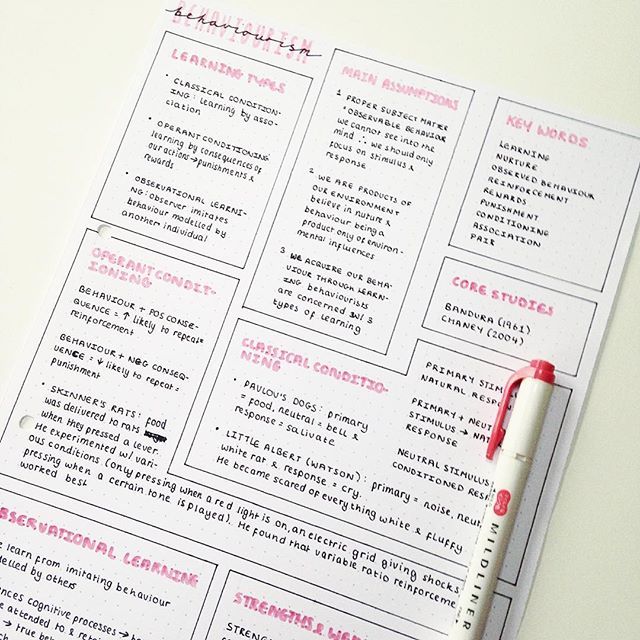 BEHAVIOURISM
behaviourism
LEARNING TYPES
• CLASSICAL CONDITION-
ING: learning by asso-
ciation
• OPERANT CONDITIONING
learning by consequences of
our actions → punishments &
rewards
• OBSERVATIONAL LEARNI-
NG: observer imitates
behaviour modelled by
another individual
MAIN ASSUMPTIONS
1 PROPER SUBJECT MATTER
• OBSERVABLE BEHAVIOUR
we cannot see into the
mind ∴ we should only
focus on stimulus &
response
2 WE ARE PRODUCTS OF
OUR ENVIRONMENT
believe in nurture &
behaviour being a
product only of environ-
mental influences
3 WE ACQUIRE OUR BEHA-
VIOUR THROUGH LEARN-
ING behaviourists
are concerned w/ 3
types of learning
KEY WORDS
LEARNING
NURTURE
OBSERVED BEHAVIOUR
REINFORCEMENT
REWARDS
PUNISHMENT
CONDITIONING
ASSOCIATION
PAIR
CORE STUDIES
BANDURA (1961)
CHANEY (2004)
OPERANT CONDIT-
IONING
BEHAVIOUR + POS CONSE-
QUENCE = ↑ likely to repeat =
reinforcement
BEHAVIOUR + NEG CONSEQ-
UENCE = ↓ likely to repeat =
punishment
• SKINNER'S RATS: food
was delivered to rats
when they pressed a lever.
He experimented w/ vari-
ous conditions (only pressing when a red light is on, an electric grid giving shocks,
pressing when a certain tone is played). He found that variable ratio reinforceme
worked best
CLASSICAL CONDITIO-
NING
• PAVLOV'S DOGS: primary
= food, neutral = bell &
response = salivate
• LITTLE ALBERT (WATSON): primary = noise, neutr
white rat & response = cry.
He became scared of everything white & fluffy
PRIMARY STIMUL
NATURAL RESPON
PRIMARY + NEUT
STIMULUS → NAT
RESPONSE
NEUTRAL STIMULUS
CONDITIONED RESP
OBSERVATIONAL LEARNING
e learn from imitating behaviour
delled by others
ences cognitive processes →
e attended to & ret
→ true beha
STRENGTHS & WE
MILDLINER